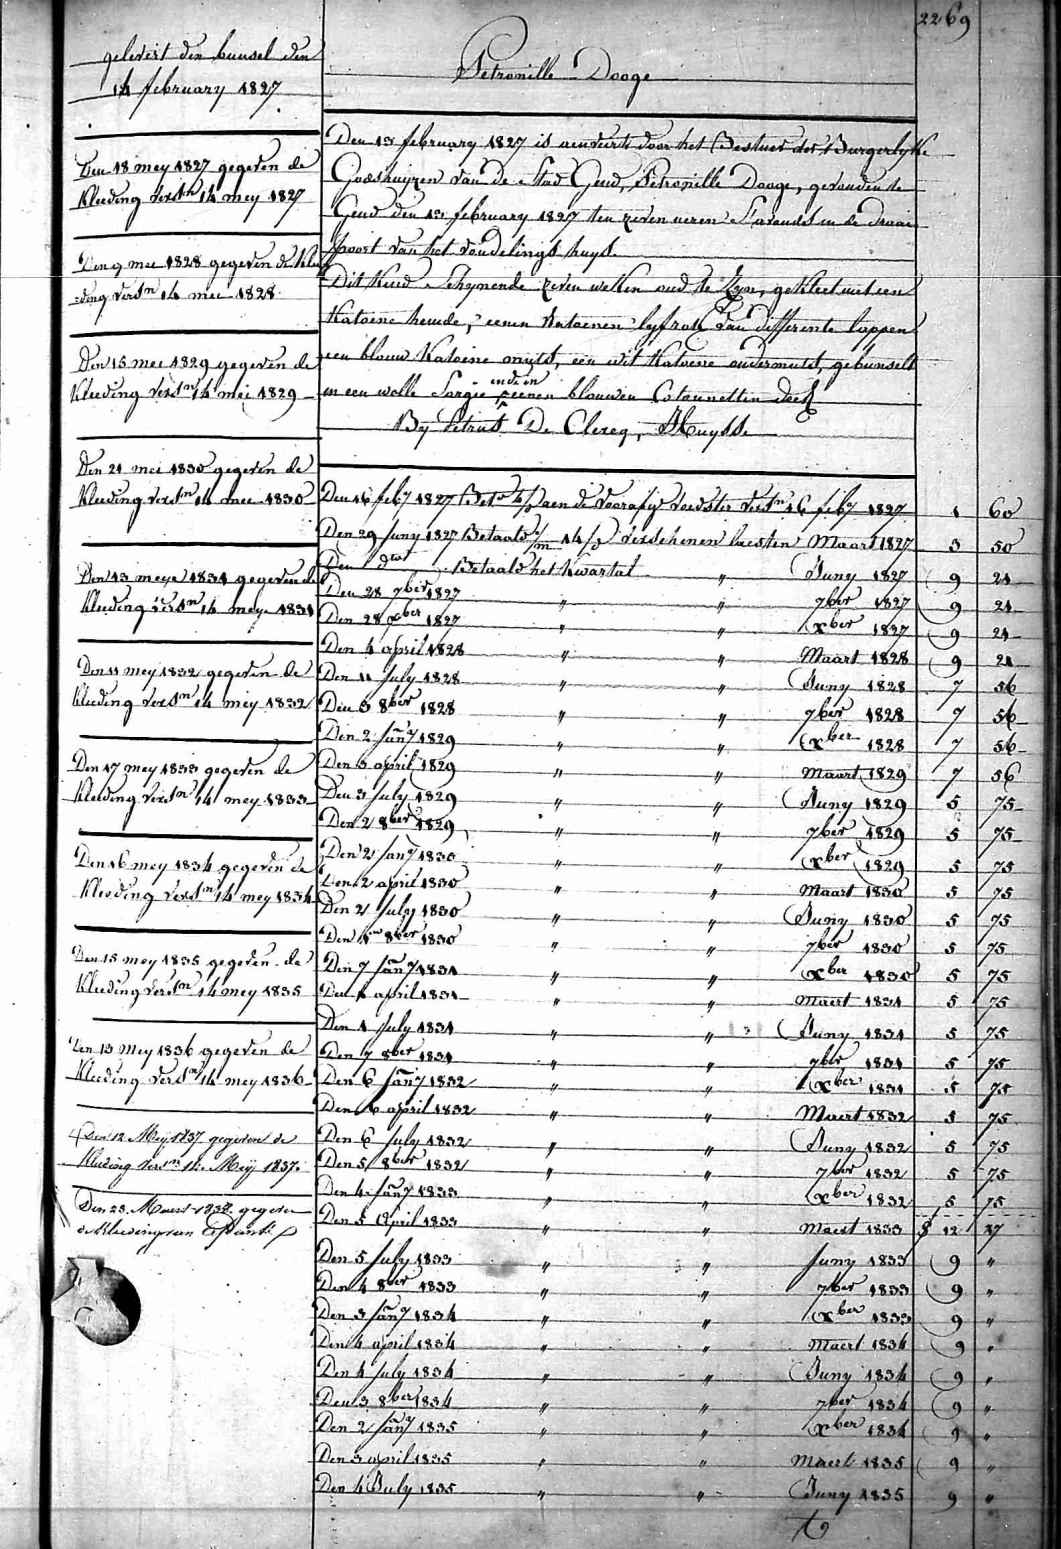 2269
gelevert den bunsel den
14 february 1827
Petronille Dooge
Den 13 february 1827 is aenveert door het Bestuer der Burgerlyke
Godshuyzen van de Stad Gend, Petronille Dooge, gevonden te
Gend den 13 february 1827 ten zeven ueren s'avonds in de Draai
poort van het vondelings huys
Dit Kind schynende zeven weken oud te zyn, gekleet met een
Katoene hemde, eenen Katoenen lyfrok van differente lappen
een blouw Katoene muts, een wit Katoene ondermuts, gebunselt
in een wolle Sargie en in eenen blouwen Cotonnetten doek
By Petrus De Clercq, Huyss.
Den 18 mey 1827 gegeven de
Kleeding versn 14 mey 1827
Den 9 mei 1828 gegeven de Klee
ding versn 14 mei 1828
Den 15 mei 1829 gegeven de
Kleeding versn 14 mei 1829
Den 21 mei 1830 gegeven de
Kleeding versn 14 mei 1830
Den 13 meye 1831 gegeven de
Kleeding versn 14 mey 1831
Den 11 mey 1832 gegeven de
Kleeding versn 14 mey 1832
Den 17 mey 1833 gegeven de
Kleeding versn 14 mey 1833
Den 16 mey 1834 gegeven de
Kleeding versn 14 mey 1834
Den 15 mey 1835 gegeven de
Kleeding versn 14 mey 1835
Den 13 mey 1836 gegeven de
Kleeding versn 14 mey 1836
Den 12 Meij 1837 gegeven de
Kleeding versn 14 Meij 1837
Den 23 Maert 1838 gegeven
de Kleeding van
Den 16 feby 1827 aen de voorafg voedster versn 16 feby 1827 1 60
Den 29 Juny 1827 Betaald verschenen laesten Maart 1827 3 50
Den dto Betaald het kwartal " Juny 1827 9 24
Den 28 7ber 1827 " " 7ber 1827 9 24
Den 28 xber 1827 " " xber 1827 9 24
Den 4 april 1828 " " Maart 1828 9 24
Den 11 July 1828 " " Juny 1828 7 56
Den 3 8ber 1828 " " 7ber 1828 7 56
Den 2 Jany 1829 " " xber 1828 7 56
Den 3 april 1829 " " Maart 1829 7 56
Den 3 July 1829 " " Juny 1829 5 75
Den 2 8ber 1829 " " 7ber 1829 5 75
Den 2 Jany 1830 " " xber 1829 5 75
Den 2 april 1830 " " Maart 1830 5 75
Den 2 July 1830 " " Juny 1830 5 75
Den 1n 8ber 1830 " " 7ber 1830 5 75
Den 7 Jany 1831 " " xber 1830 5 75
Den 1 april 1831 " " Maert 1831 5 75
Den 1 July 1831 " " Juny 1831 5 75
Den 7 8ber 1831 " " 7ber 1831 5 75
Den 6 Jany 1832 " " xber 1831 5 75
Den 6 april 1832 " " Maert 1832 5 75
Den 6 July 1832 " " Juny 1832 5 75
Den 5 8ber 1832 " " 7ber 1832 5 75
Den 4 Jany 1833 " " xber 1832 5 75
Den 5 April 1833 " " Maert 1833 12 27
Den 5 July 1833 " " Juny 1833 9 "
Den 4 8ber 1833 " " 7ber 1833 9 "
Den 3 Jany 1834 " " xber 1833 9 "
Den 4 april 1834 " " Maert 1834 9 "
Den 4 July 1834 " " Juny 1834 9 "
Den 3 8ber 1834 " " 7ber 1834 9 "
Den 2 Jany 1835 " " xber 1834 9 "
Den 3 april 1835 " " Maert 1835 9 "
Den 4 July 1835 " " Juny 1835 9 "